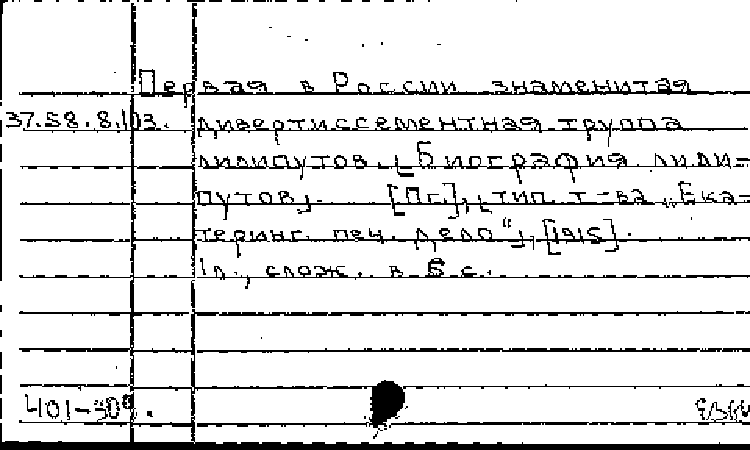 Первая в России знаменитая
37.58.8.103. дивертиссементная труппа
лилипутов. [Биография лили-
путов]. [Пг.], [тип. т-ва „Ека-
теринг. печ. дело"], [1915].
1 л., слож. в 6 с.
401-309.